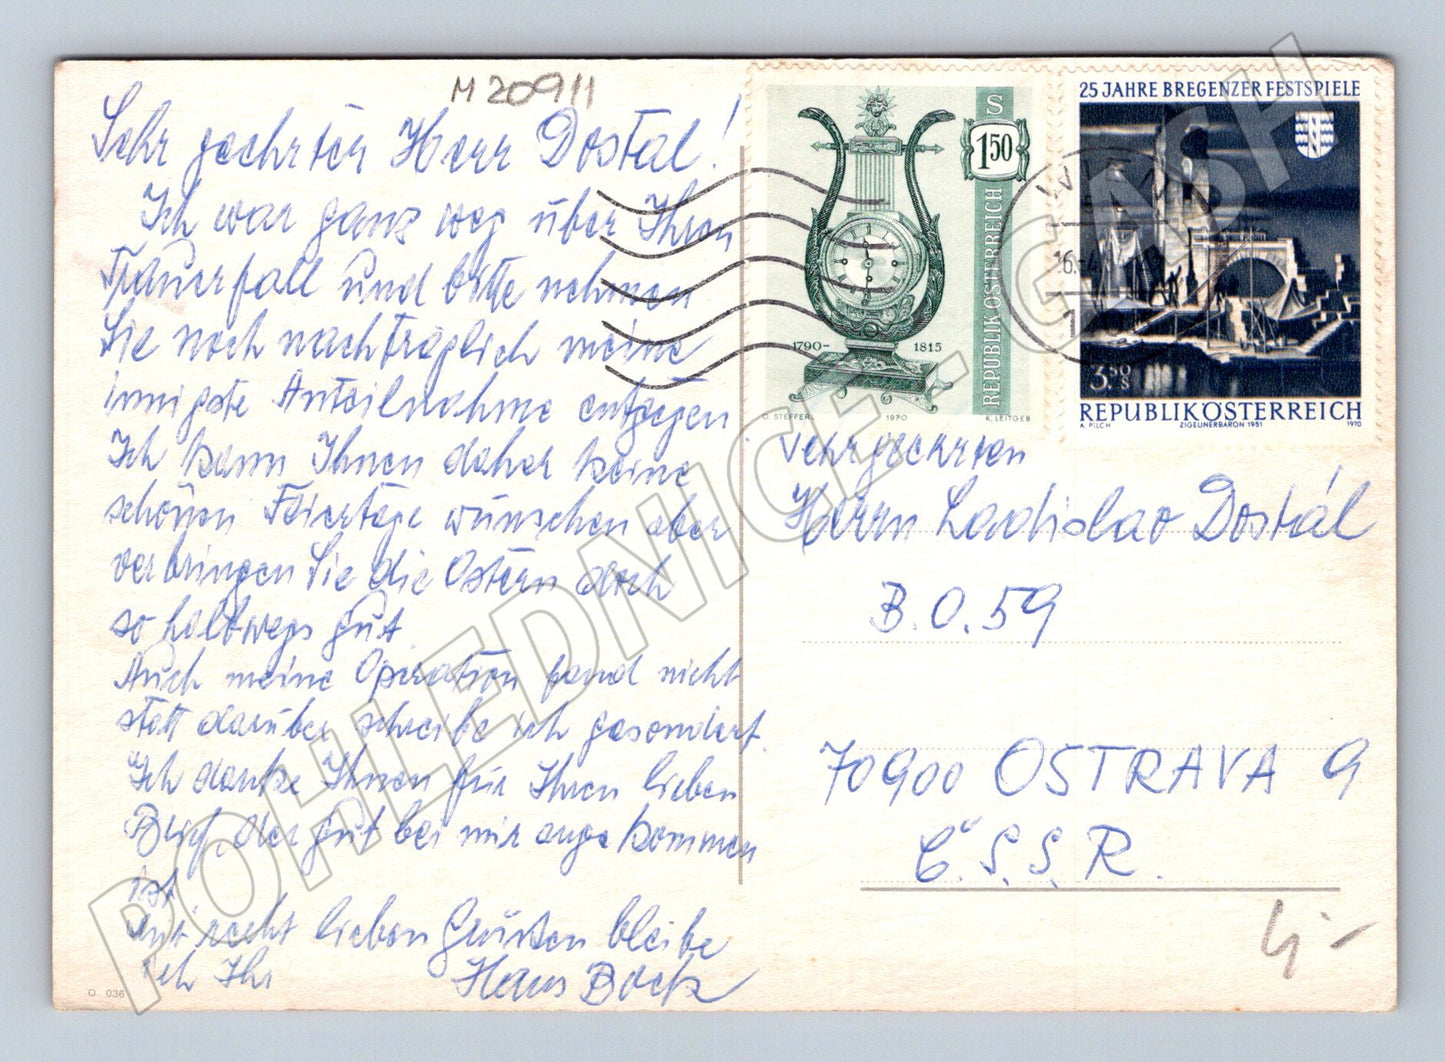 M 20911
Sehr geehrter Herr Dostal!
Ich war ganz weg über Ihren
Trauerfall und bitte nehmen
Sie noch nachträglich meine
innigste Anteilnahme entgegen
Ich kann Ihnen daher keine
schönen Feiertage wünschen aber
verbringen Sie die Ostern doch
so halbwegs gut
Auch meine Operation fand nicht
statt darüber schreibe ich gesondert.
Ich danke Ihnen für Ihren lieben
Brief, der gut bei mir angekommen
ist
Mit recht lieben Grüßen bleibe
ich Ihr Hans Bock
O 036
S
1 50
1790-1815
REPUBLIK ÖSTERREICH
O. STEFFERL 1970 K. LEITGEB
25 JAHRE BREGENZER FESTSPIELE
3.50 S
REPUBLIK ÖSTERREICH
A. PILCH ZIGEUNERBARON 1951 1970
16.-4.
Sehrgeehrten
Herrn Ladislao Dostál
B.O.59
70900 OSTRAVA 9
Č.S.S.R.
4,-
POHLEDNICE-CASH